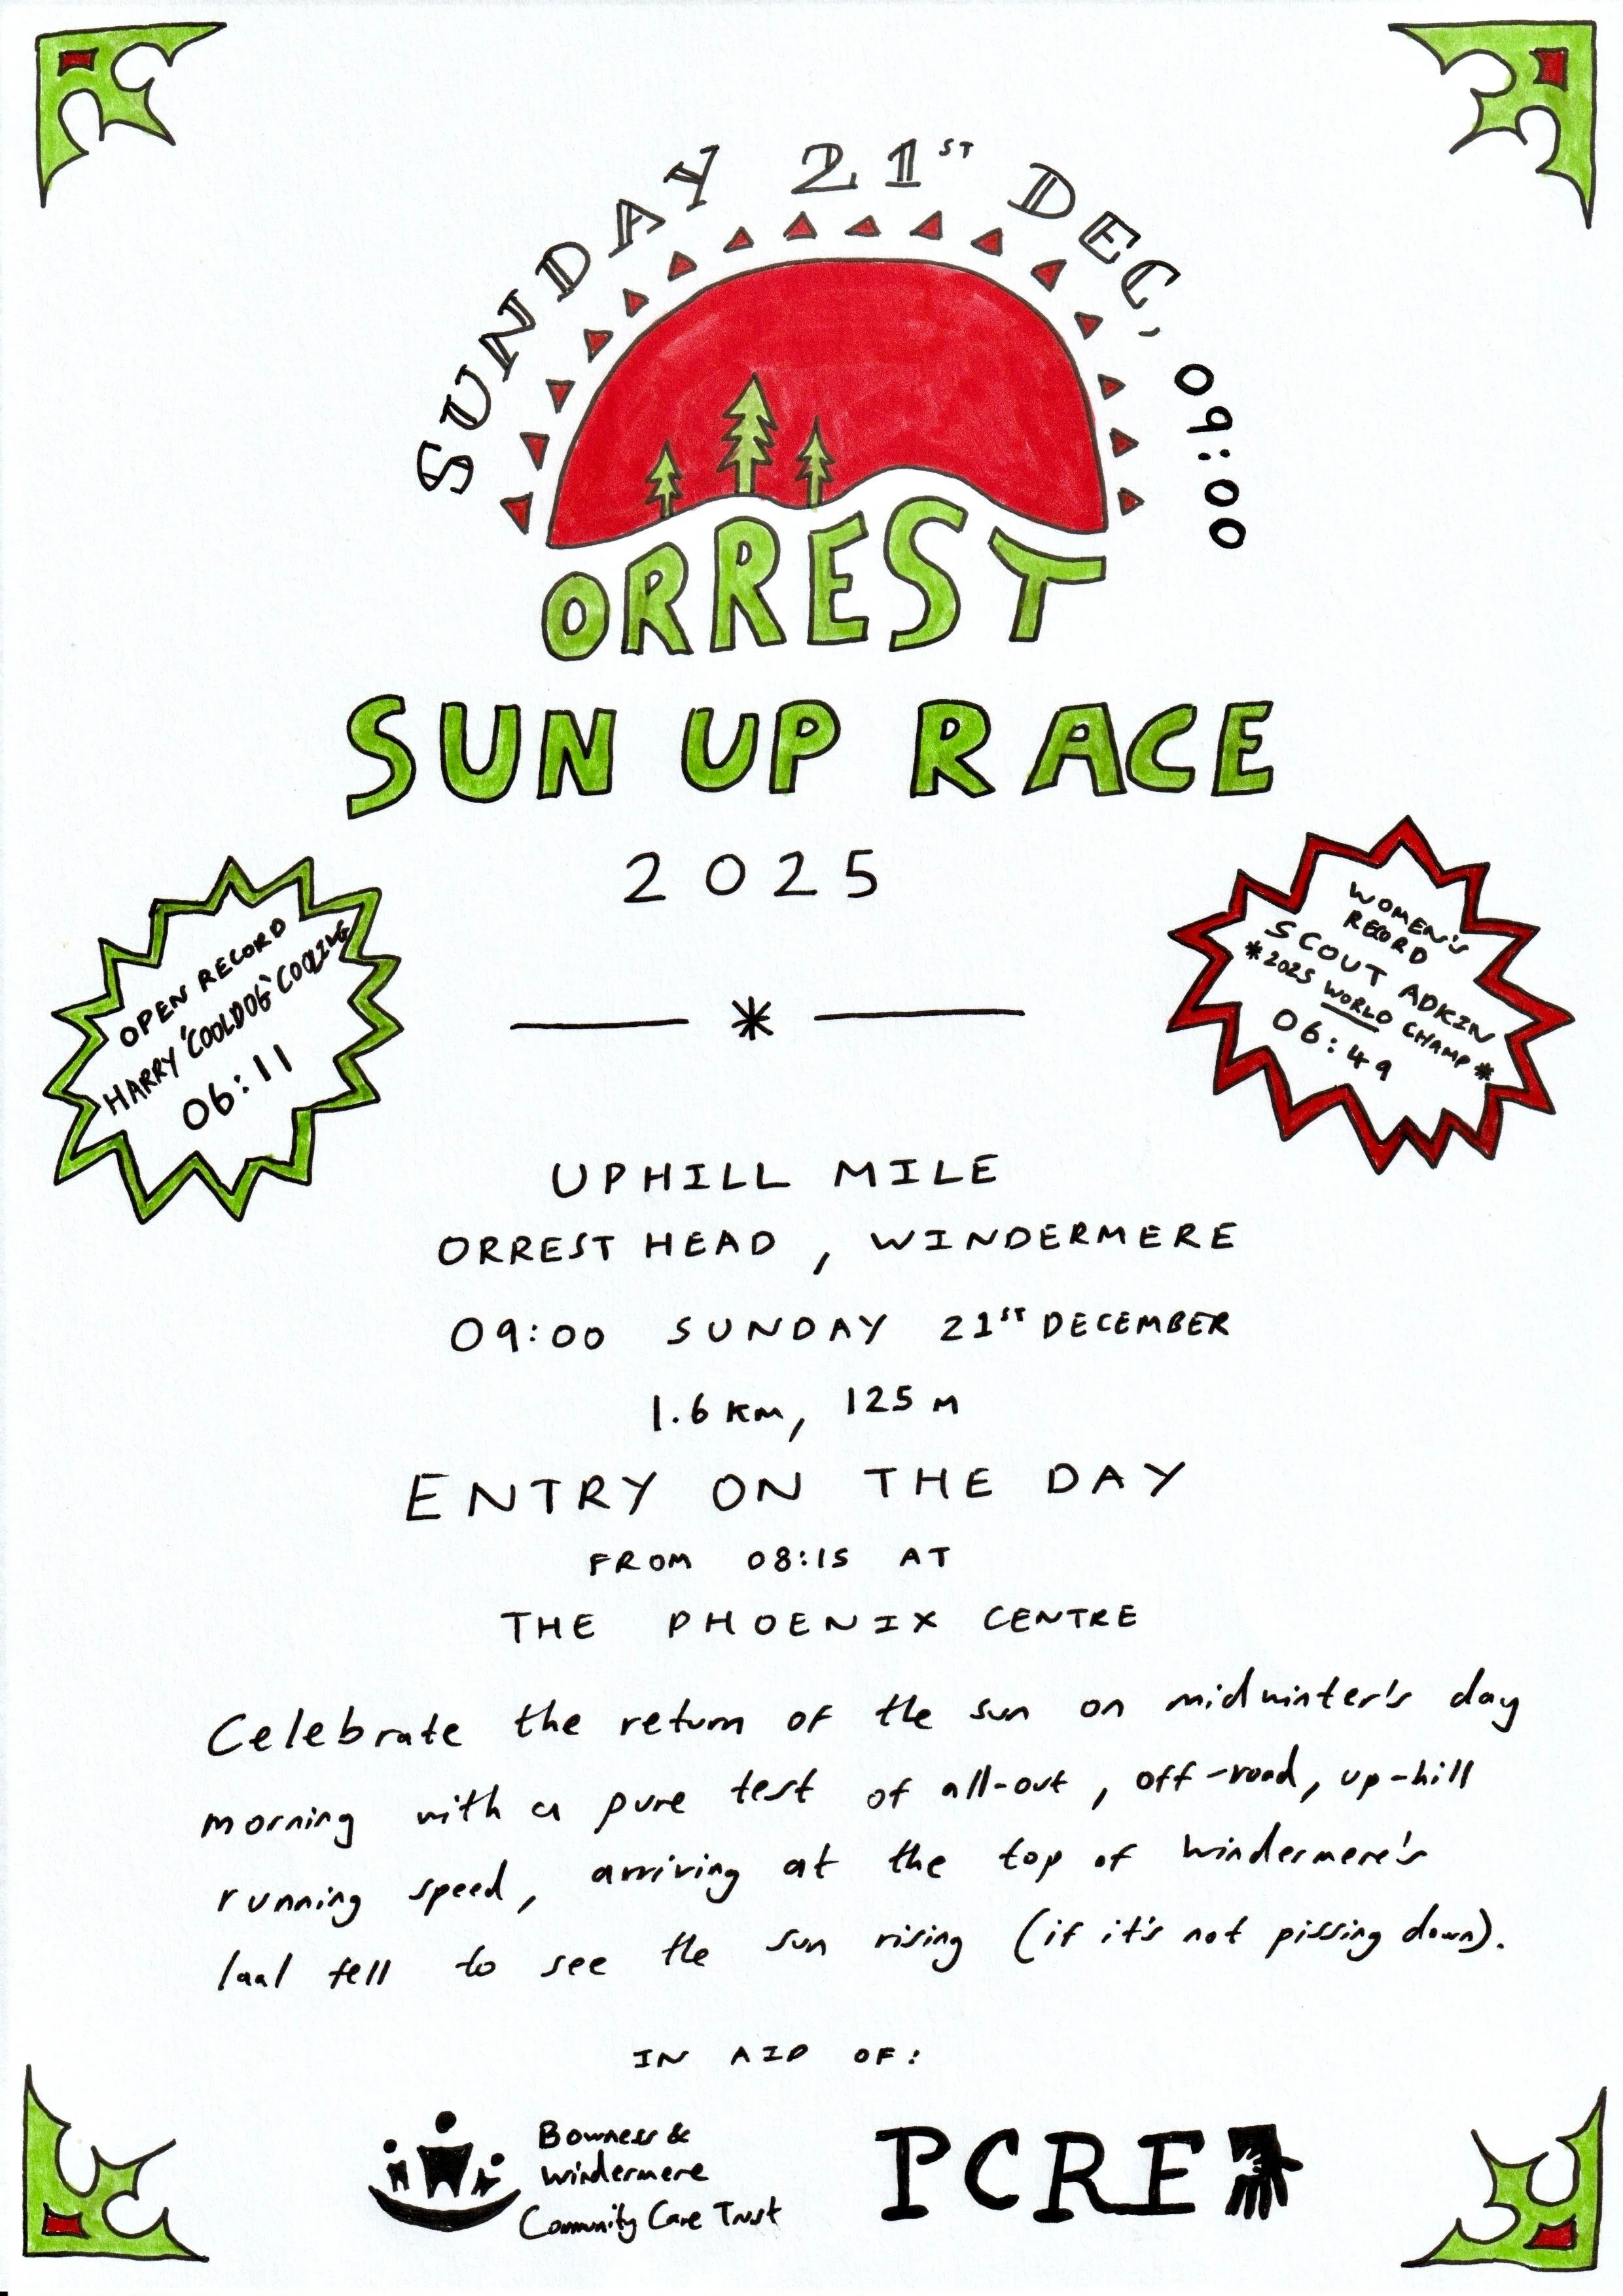 SUNDAY 21ST DEC, 09:00
ORREST
SUN UP RACE
2025
OPEN RECORD
HARRY 'COOLDOG' COOLING
06:11
WOMEN'S
RECORD
SCOUT ADKIN
*2025 WORLD CHAMP*
06:49
*
UPHILL MILE
ORREST HEAD, WINDERMERE
09:00 SUNDAY 21ST DECEMBER
1.6 KM, 125 M
ENTRY ON THE DAY
FROM 08:15 AT
THE PHOENIX CENTRE
Celebrate the return of the sun on midwinter's day
morning with a pure test of all-out, off-road, up-hill
running speed, arriving at the top of Windermere's
laal fell to see the sun rising (if it's not pissing down).
IN AID OF:
Bowness &
Windermere
Community Care Trust
PCRF